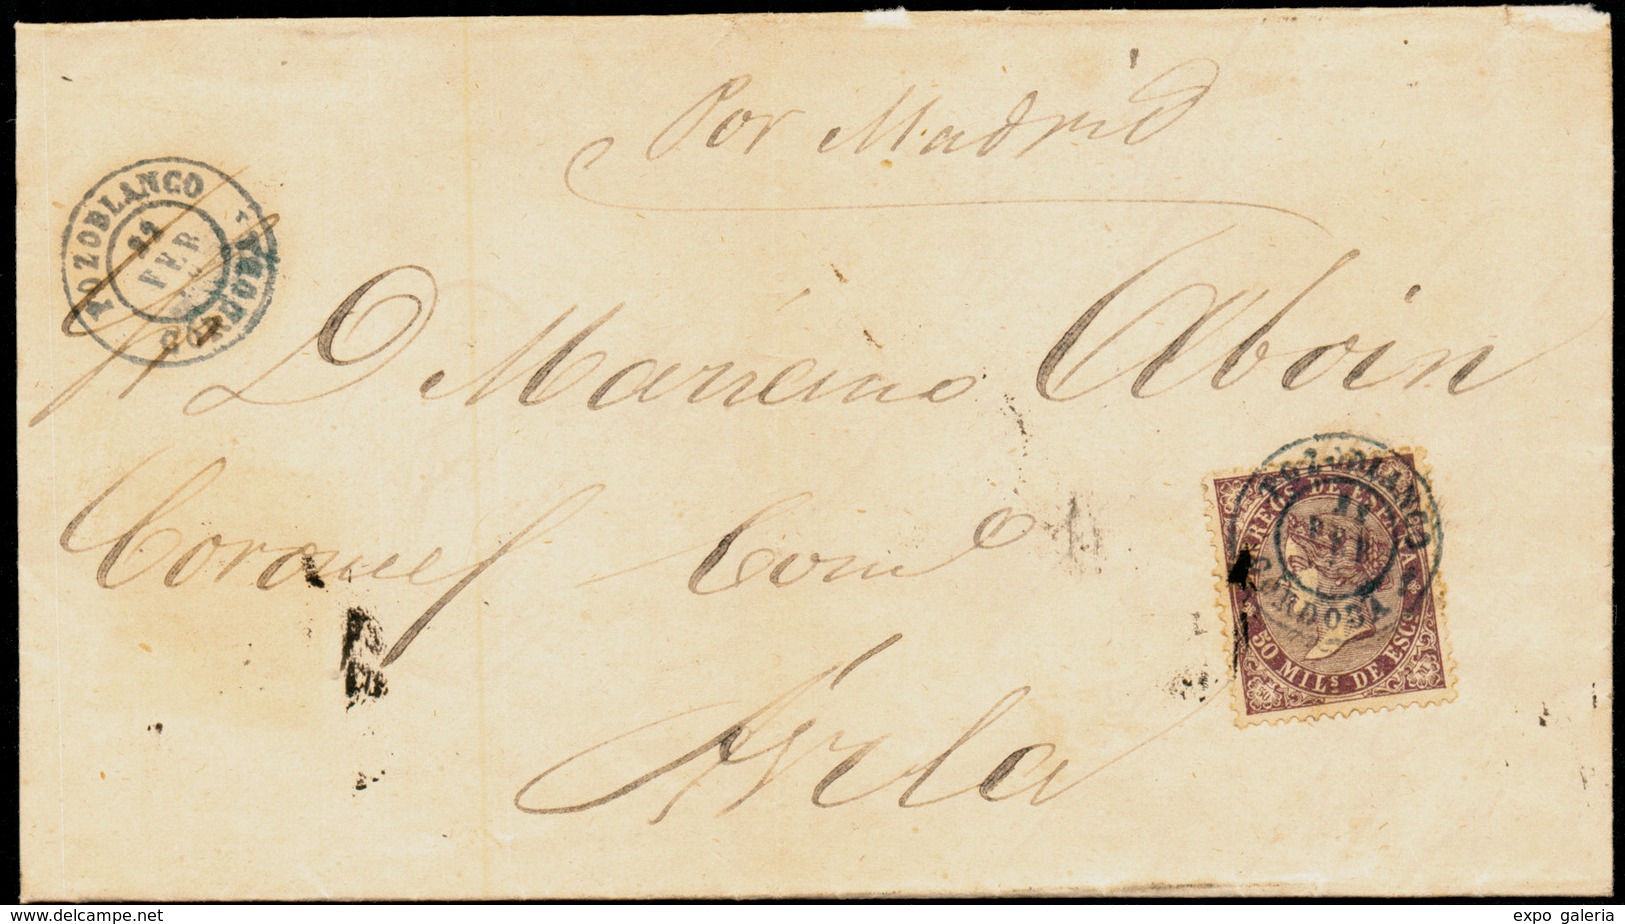 Por Madrid
POZOBLANCO
22
FEB
CORDOBA
D Marcemo Aboin
Coronel Comd o
Avila
POZOBLANCO
FEB
CORDOBA
CORREOS DE ESPAÑA
50 MILS DE ESCO
50
www.delcampe.net
expo galeria